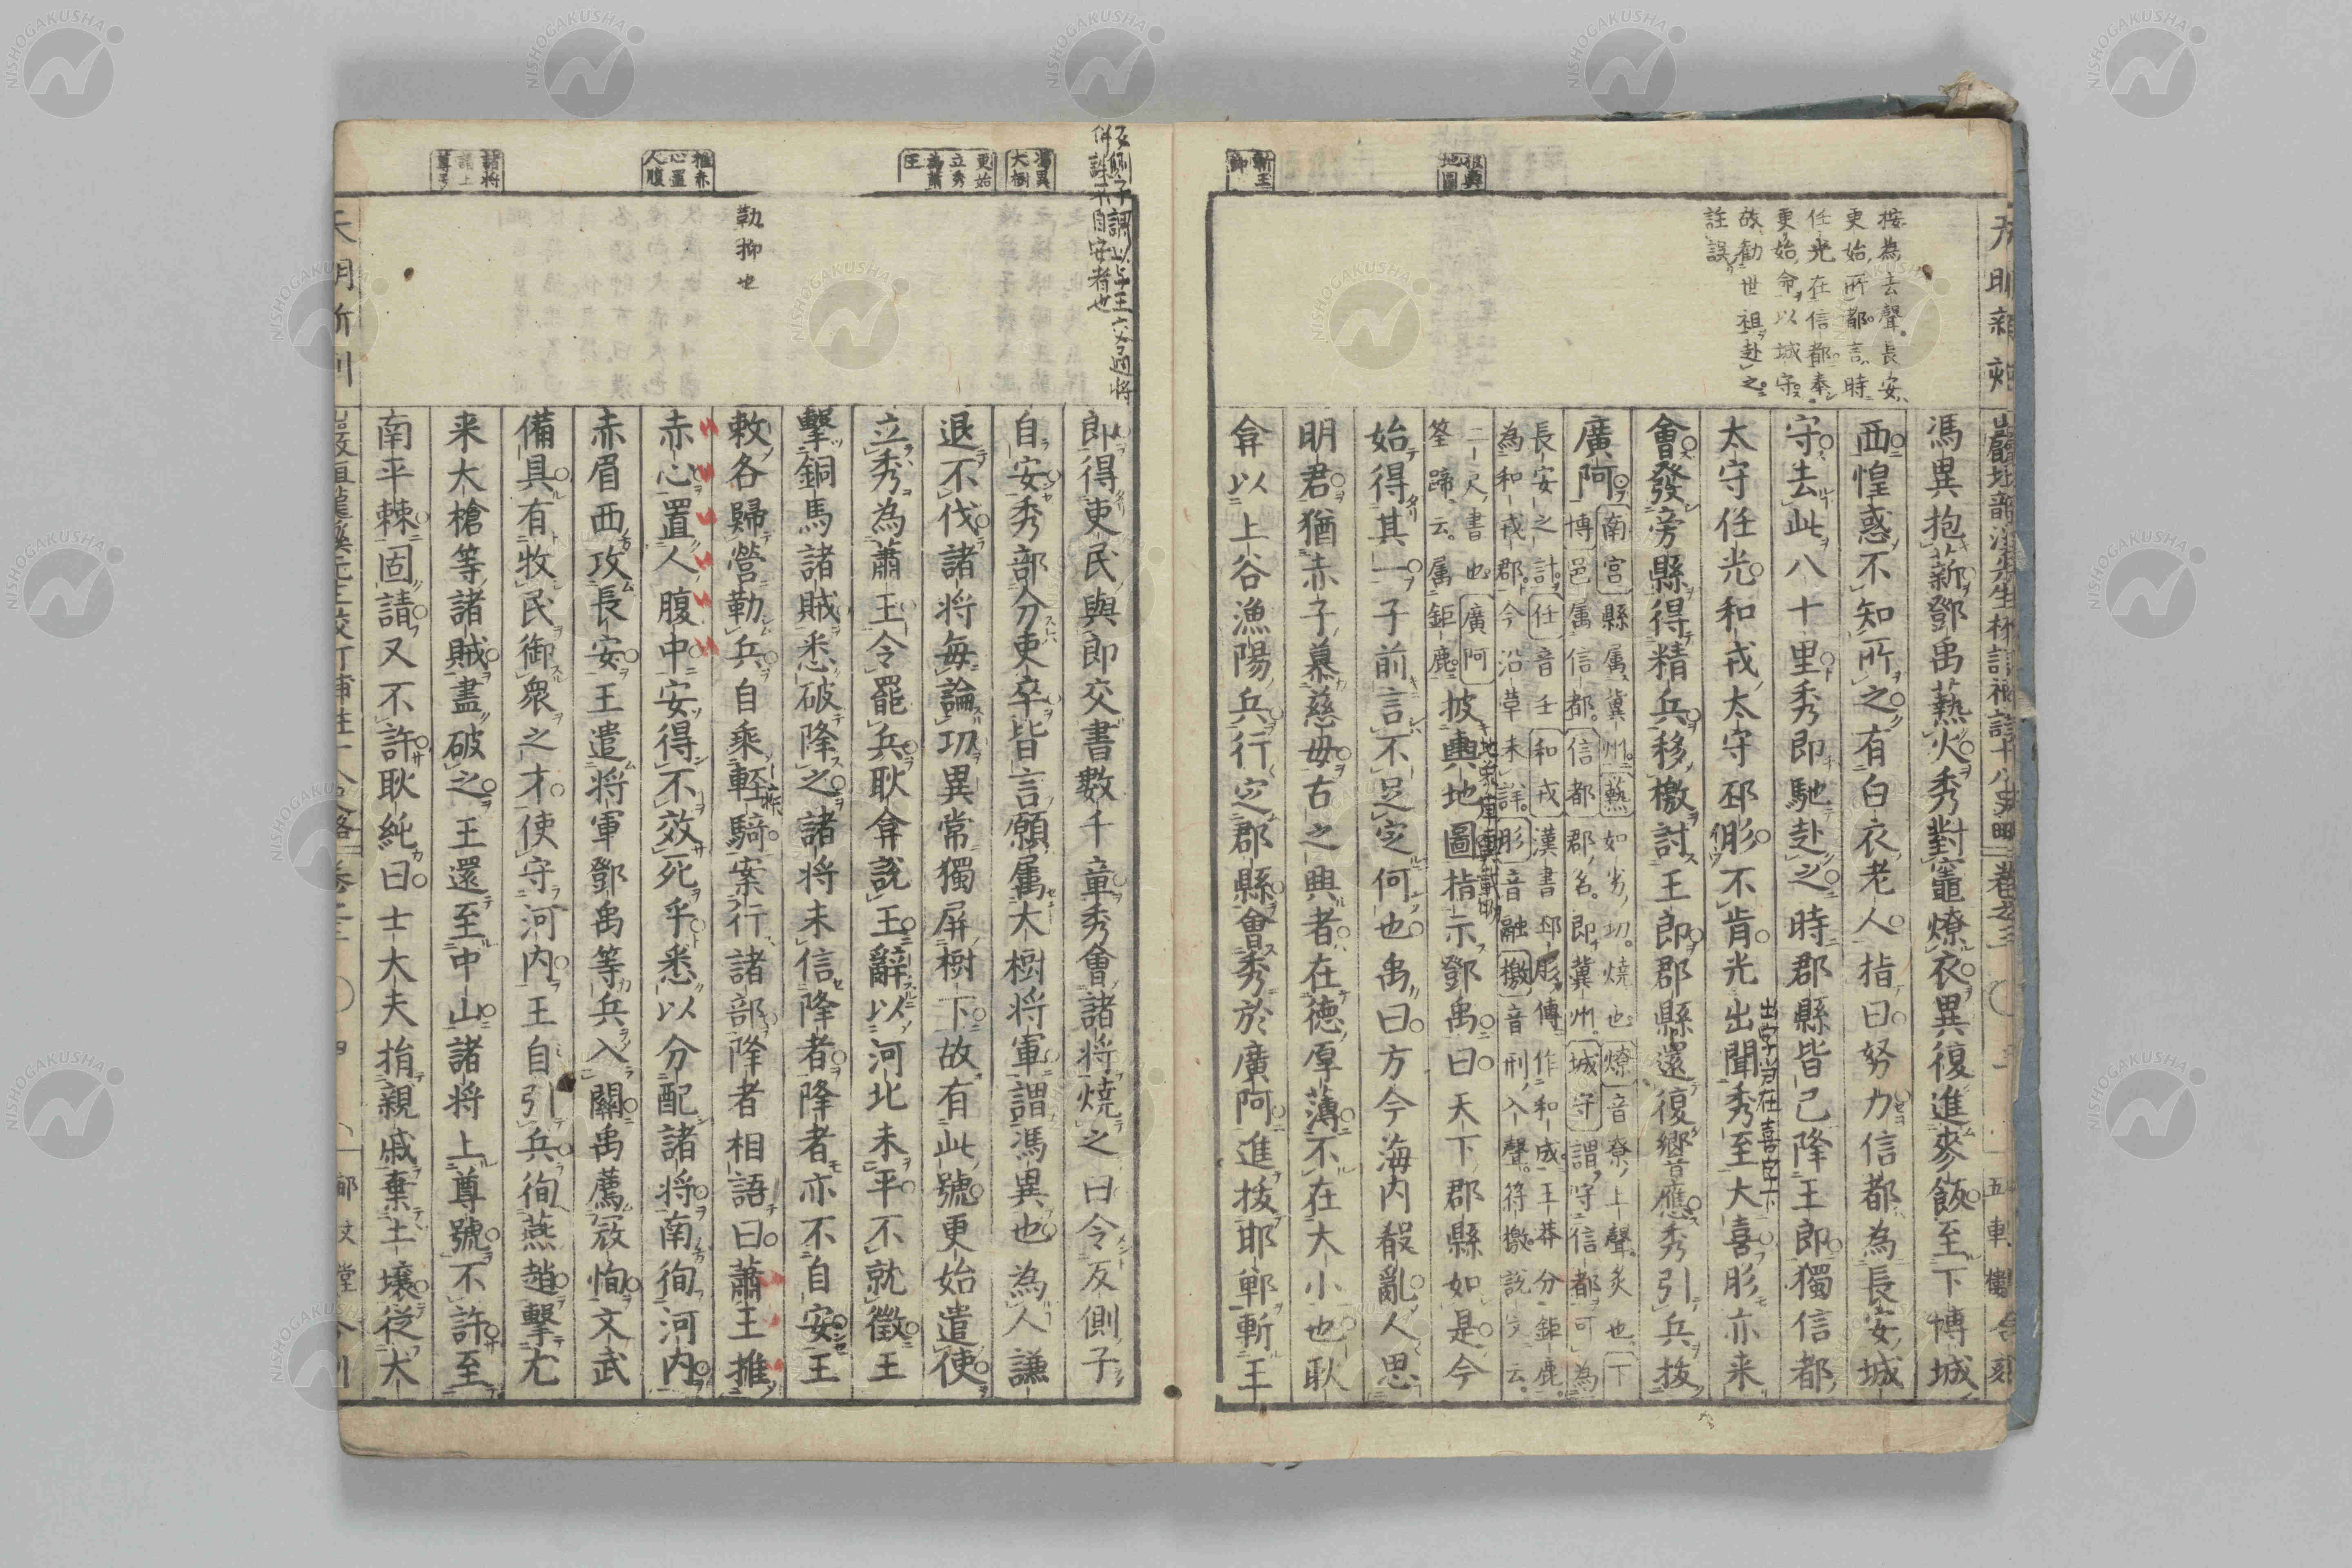 馮異抱薪鄧禹爇火秀對竈燎衣異復進麥飯至下博城
西惶惑不知所之有白衣老人指曰努力信都為長安城
守去此八十里秀即馳赴之時郡縣皆已降王郎獨信都
太守任光和戎太守邳肜不肯光出聞秀至大喜肜亦来
會發旁縣得精兵移檄討王郎郡縣還復響應秀引兵拔
廣阿
南宮縣属冀州爇如劣切燒也燎音寮上聲炙也下
博邑属信都信都郡名即冀州城守謂守信都可為
長安之計任音壬和戎漢書邳肜傳作和成王莽分鉅鹿
為和戎郡今沿草未詳肜音融檄音刑入聲符檄説文云
二尺書也廣阿
筌蹄云属鉅鹿
披輿地圖指示鄧禹曰天下郡縣如是今
始得其一子前言不足定何也禹曰方今海內殽亂人思
明君猶赤子慕慈母古之興者在德厚薄不在大小也耿
弇以上谷漁陽兵行定郡縣會秀於廣阿進拔邯鄲斬王
郎得吏民與郎交書數千章秀會諸将燒之曰令反側子
自安秀部分吏卒皆言願属大樹将軍謂馮異也為人謙
退不伐諸将每論功異常獨屏樹下故有此號更始遣使
立秀為蕭王令罷兵耿弇說王辭以河北未平不就徵王
擊銅馬諸賊悉破降之諸将未信降者降者亦不自安王
敕各歸營勒兵自乘輕騎案行諸部降者相語曰蕭王推
赤心置人腹中安得不效死乎悉以分配諸将南徇河内
赤眉西攻長安王遣将軍鄧禹等兵入關禹薦寇恂文武
備具有牧民御衆之才使守河内王自引兵徇燕趙擊尤
来大槍等諸賊盡破之王還至中山諸将上尊號不許至
南平棘固請又不許耿純曰士大夫捐親戚棄土壤從大
按為去聲長安
更始所都言時
任光在信都奉
更始命以城守
故勸世祖赴之
註誤
勒抑也
斬王郎
馮異大樹
更始立秀為蕭王
推赤心置人腹
諸将請上尊号
五車樓合刻
出字当在喜字下